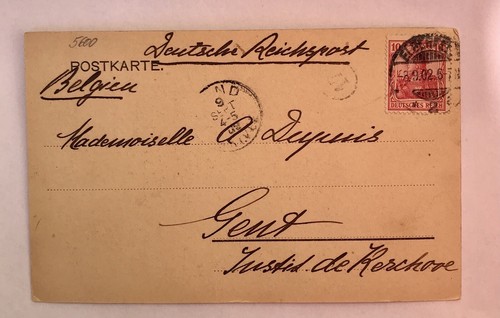 5600
Deutsche Reichspost
POSTKARTE.
Belgien
10
DEUTSCHES REICH
8.9.02.6-7N
ND
9
SEPT
4-5
N
Mademoiselle Dupuis
Gent
Instit. de Kerchove